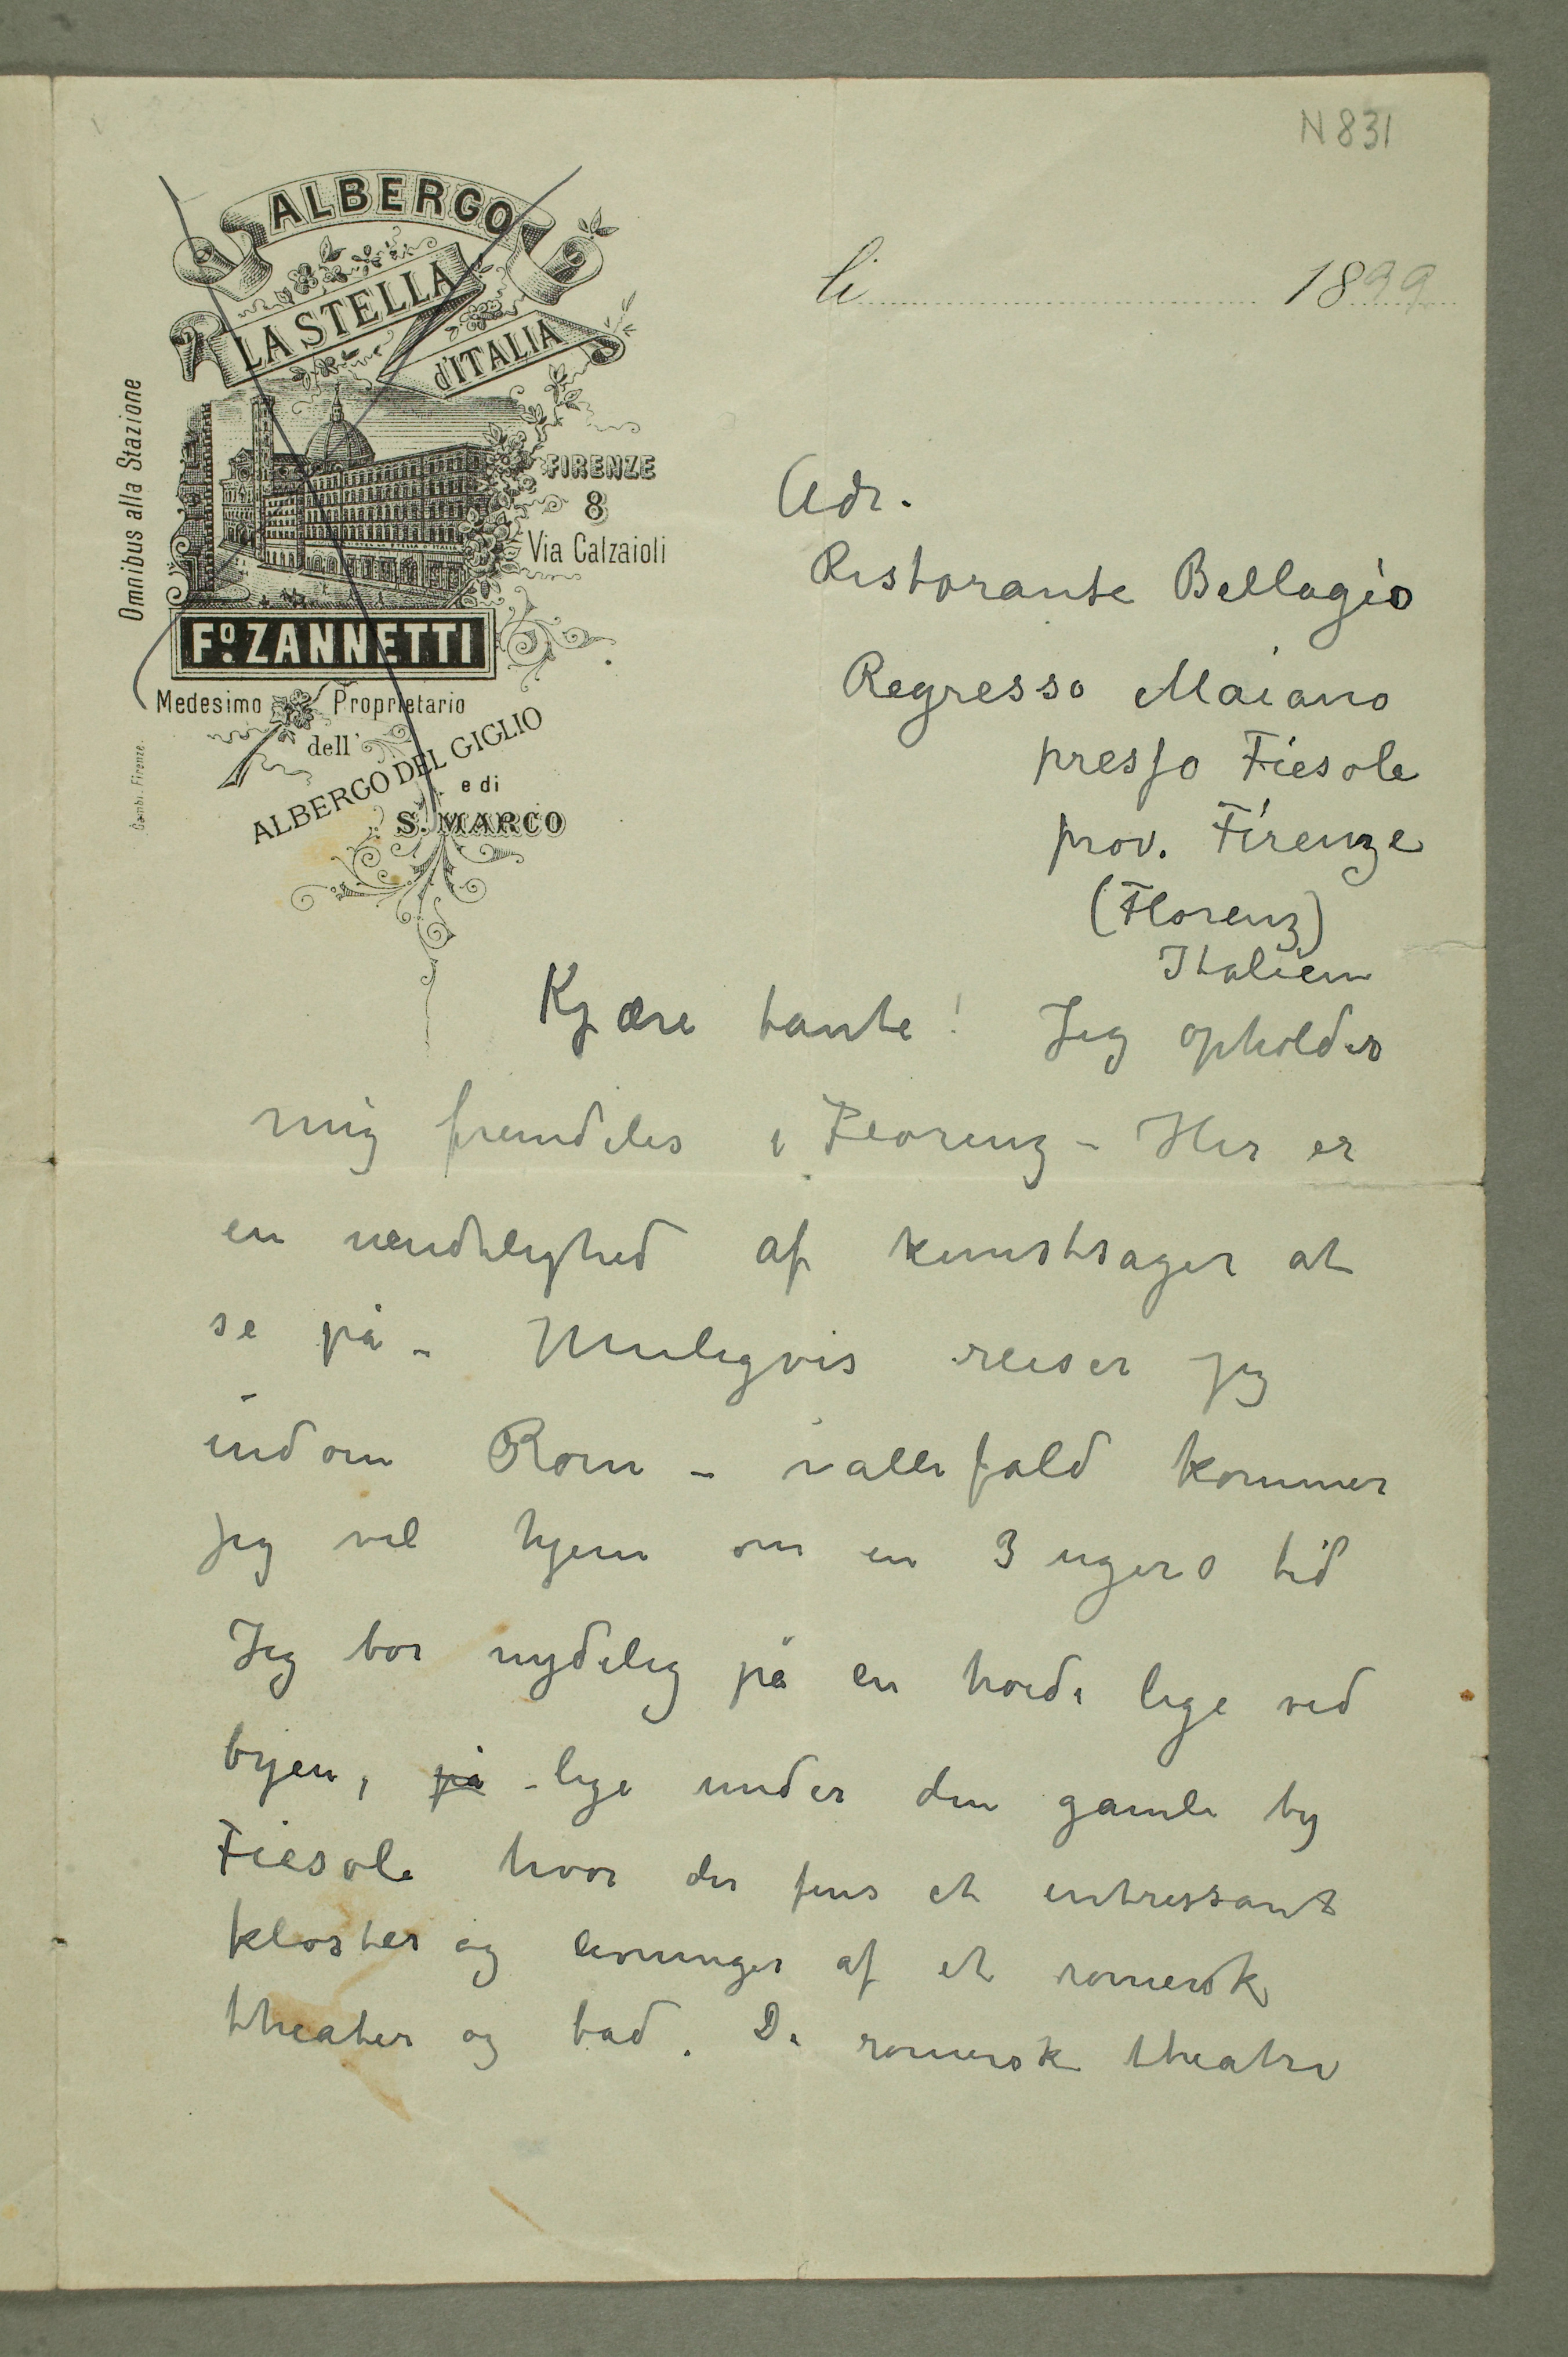 N 831
ALBERGO
LA STELLA
d'ITALIA
Omnibus alla Stazione
FIRENZE
8
Via Calzaioli
Fº. ZANNETTI
Medesimo Proprietario
dell'
ALBERGO DEL GIGLIO
e di
S. MARCO
Gambi. Firenze.
li 1899
Adr.
Ristorante Bellagio
Regresso Maiano
presso Fiesole
prov. Firenze
(Florenz)
Italien
Kjære tante! Jeg opholder
mig fremdeles i Florenz – Her er
en uendelighed af kunstsager at
se på – Muligvis reiser jeg
indom Rom – ialle fald kommer
jeg vel hjem om en 3 ugers tid
Jeg bor nydelig på en hoide lige ved
byen, på – lige under den gamle by
Fiesole hvor der fins et intressant
kloster og levninger af et romersk
theater og bad. De romerske theatre